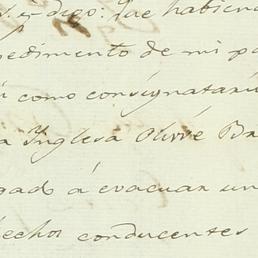 digo: Que habien
pedimento de mi pa
como consignatari
a Ynglesa Olivé Br
gado á evacuar un
echos conducentes